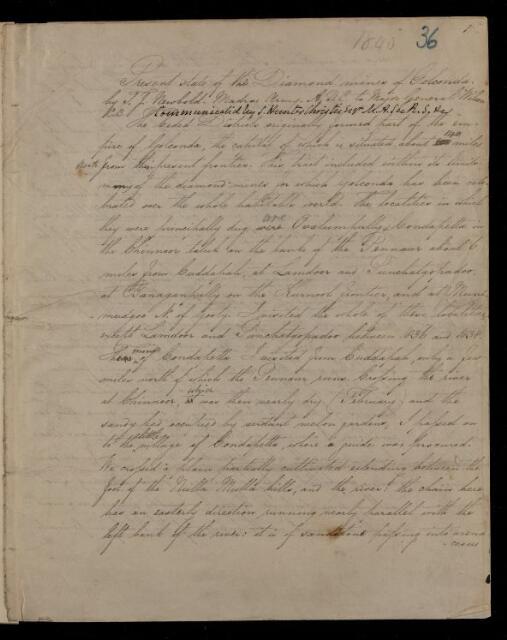 1843 36 1
Present state of the Diamond mines of Golconda.
by T. J. Newbold. Madras Army, to Major General Wilson
K.C. Communicated by S. Hunter Christie Esqr M.A. Sec. R.S. &c
The Ceded Districts originally formed part of the em-
pire of Golconda, the capital of which is situated about 140 miles
north from the present frontier. This tract included within its limits
many of the diamond mines for which Golconda has been cele-
brated over the whole habitable world. The localities in which
they were principally dug are Ovalumpully, Condapetta in
the Chinnoor taluk on the banks of the Pennaur about 6
miles from Cuddapah, at Lamdoor and Pinchetgapadoo
at Banaganpilly on the Kurnool frontier, and at Moone
-mudgoo N. of Gooty. I visited the whole of these localities
except Lamdoor and Pinchetgapadoo between 1836 and 1838.
The mines of Condapetta I visited from Cuddapah, only a few
miles north of which the Pennaur runs. Crossing the river
at Chinnoor, which was then nearly dry (February) and the
sandy bed occupied by verdant melon gardens, I passed on
to the little village of Condapetta, where a guide was procured.
We crossed a plain partially cultivated extending between the
foot of the Nulla Mulla hills, and the river: the chain here
has an easterly direction running nearly parallel with the
left bank of the river: it is of sandstone passing into arena
-ceous